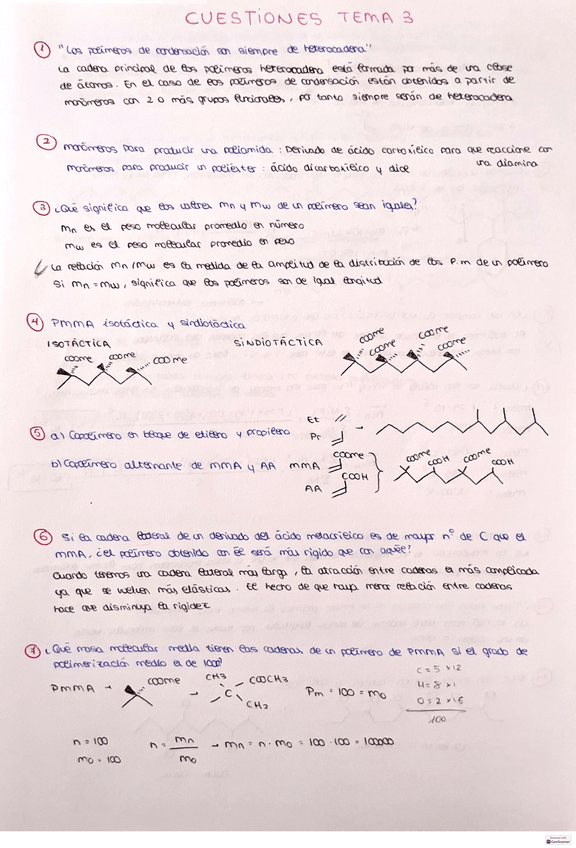 CUESTIONES TEMA 3
1 "Los polímeros de condensación son siempre de heterocadena"
La cadena principal de los polímeros heterocadena está formada por más de una clase
de átomos. En el caso de los polímeros de condensación están obtenidos a partir de
monómeros con 2 o más grupos funcionales, por tanto siempre serán de heterocadena
2 monómeros para producir una poliamida : Derivado de ácido carboxílico para que reaccione con
una diamina
monómeros para producir un poliéster : ácido dicarboxílico y diol
3 ¿Qué significa que los valores Mn y Mw de un polímero sean iguales?
Mn es el peso molecular promedio en número
Mw es el peso molecular promedio en peso
La relación Mn/Mw es la medida de la amplitud de la distribución de los P.m de un polímero
Si Mn = Mw, significa que los polímeros son de igual longitud
4 PMMA isotáctica y sindiotáctica
ISOTÁCTICA
SINDIOTÁCTICA
COOMe COOMe COOMe
COOMe COOMe COOMe COOMe
5 a) Copolímero en bloque de etileno y propileno
Et
Pr
b) Copolímero alternante de MMA y AA
MMA
COOMe
AA
COOH
COOMe COOH COOMe COOH
6 Si la cadena lateral de un derivado del ácido metacrílico es de mayor nº de C que el
MMA, ¿el polímero obtenido con él será más rígido que con aquél?
Cuando tenemos una cadena lateral más larga, la atracción entre cadenas es más complicada
ya que se vuelven más elásticas. El hecho de que haya menor relación entre cadenas
hace que disminuya la rigidez
7 ¿Qué masa molecular media tienen las cadenas de un polímero de PMMA si el grado de
polimerización medio es de 1000?
PMMA → COOMe → CH3 COOCH3 C CH2
Pm = 100 = mo
C = 5 × 12
H = 8 × 1
O = 2 × 16
100
n = 100
mo = 100
n = Mn / mo → Mn = n · mo = 100 · 100 = 100000